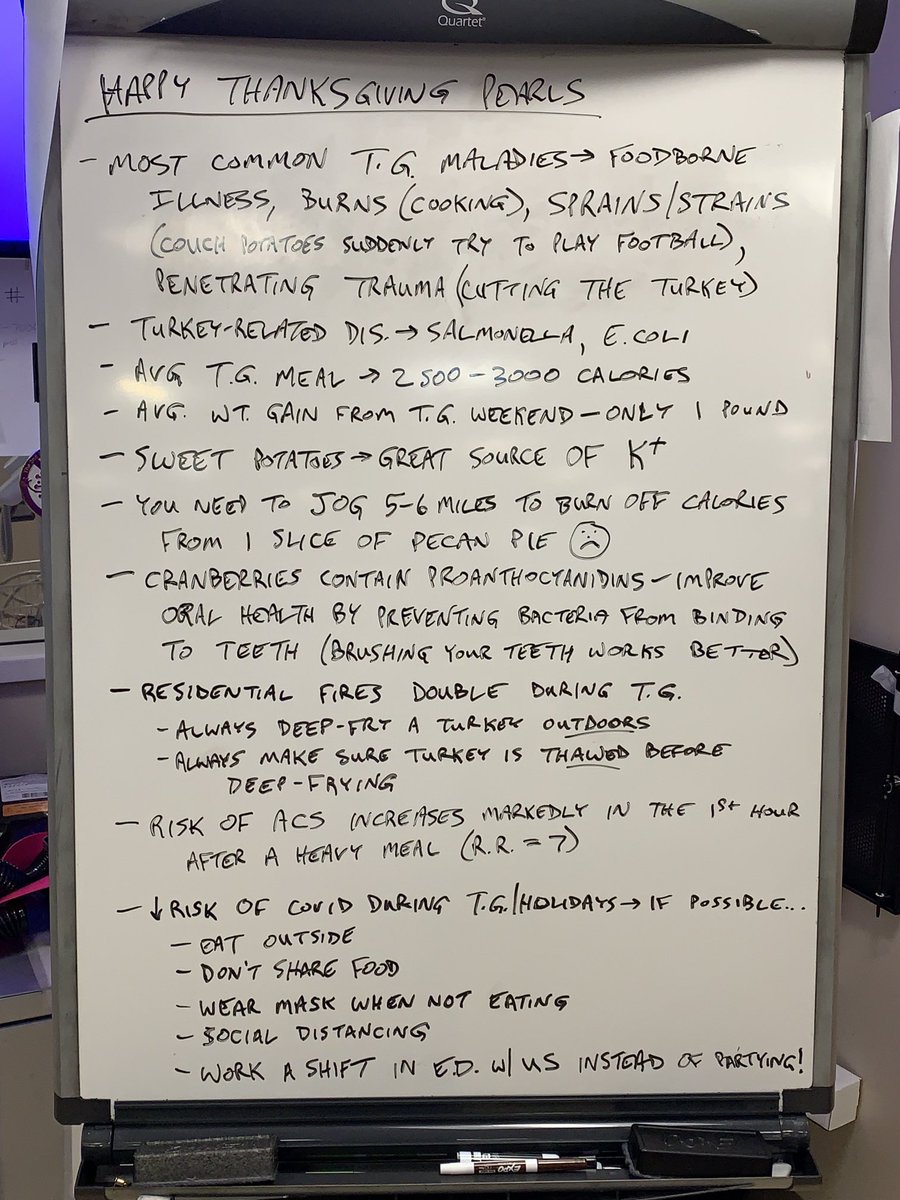 Quartet®
HAPPY THANKSGIVING PEARLS
- MOST COMMON T.G. MALADIES → FOODBORNE
ILLNESS, BURNS (COOKING), SPRAINS/STRAINS
(COUCH POTATOES SUDDENLY TRY TO PLAY FOOTBALL),
PENETRATING TRAUMA (CUTTING THE TURKEY)
- TURKEY-RELATED DIS. → SALMONELLA, E. COLI
- AVG T.G. MEAL → 2500-3000 CALORIES
- AVG. WT. GAIN FROM T.G. WEEKEND - ONLY 1 POUND
- SWEET POTATOES → GREAT SOURCE OF K+
- YOU NEED TO JOG 5-6 MILES TO BURN OFF CALORIES
FROM 1 SLICE OF PECAN PIE ☹
- CRANBERRIES CONTAIN PROANTHOCYANIDINS - IMPROVE
ORAL HEALTH BY PREVENTING BACTERIA FROM BINDING
TO TEETH (BRUSHING YOUR TEETH WORKS BETTER)
- RESIDENTIAL FIRES DOUBLE DURING T.G.
- ALWAYS DEEP-FRY A TURKEY OUTDOORS
- ALWAYS MAKE SURE TURKEY IS THAWED BEFORE
DEEP-FRYING
- RISK OF ACS INCREASES MARKEDLY IN THE 1st HOUR
AFTER A HEAVY MEAL (R.R. = 7)
- ↓ RISK OF COVID DURING T.G./HOLIDAYS → IF POSSIBLE...
- EAT OUTSIDE
- DON'T SHARE FOOD
- WEAR MASK WHEN NOT EATING
- SOCIAL DISTANCING
- WORK A SHIFT IN E.D. W/ US INSTEAD OF PARTYING!
#
EXPO